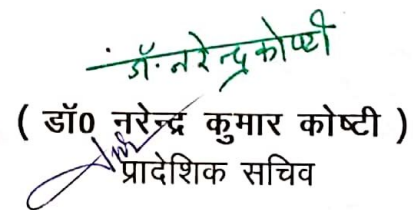 डॉ. नरेन्द्र कोष्टी
( डॉ0 नरेन्द्र कुमार कोष्टी )
प्रादेशिक सचिव